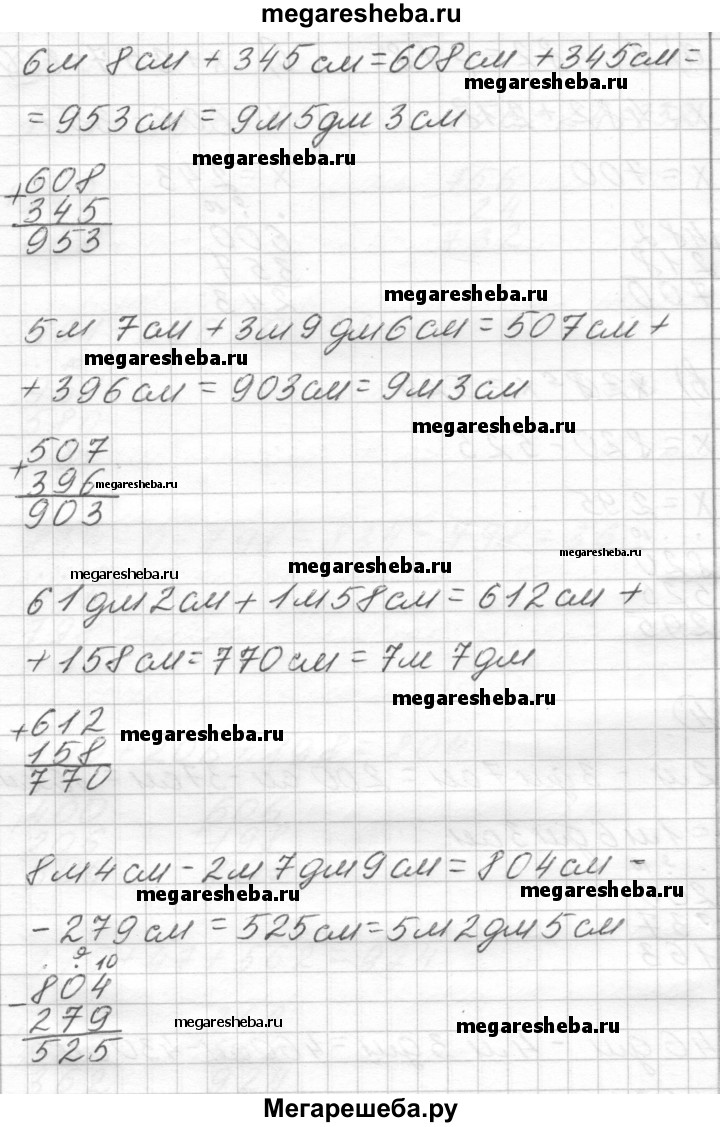 megaresheba.ru
6м 8см + 345см = 608см + 345см =
megaresheba.ru
= 953см = 9м 5дм 3см
megaresheba.ru
+ 608
345
953
megaresheba.ru
5м 7см + 3м 9дм 6см = 507см +
megaresheba.ru
+ 396см = 903см = 9м 3см
megaresheba.ru
+ 507
396
megaresheba.ru
903
megaresheba.ru
megaresheba.ru
megaresheba.ru
61дм 2см + 1м 58см = 612см +
+ 158см = 770см = 7м 7дм
megaresheba.ru
+ 612
megaresheba.ru
158
770
8м 4см - 2м 7дм 9см = 804см -
megaresheba.ru
megaresheba.ru
- 279см = 525см = 5м 2дм 5см
. 9 10
- 804
279
megaresheba.ru
megaresheba.ru
525
Мегарешеба.ру